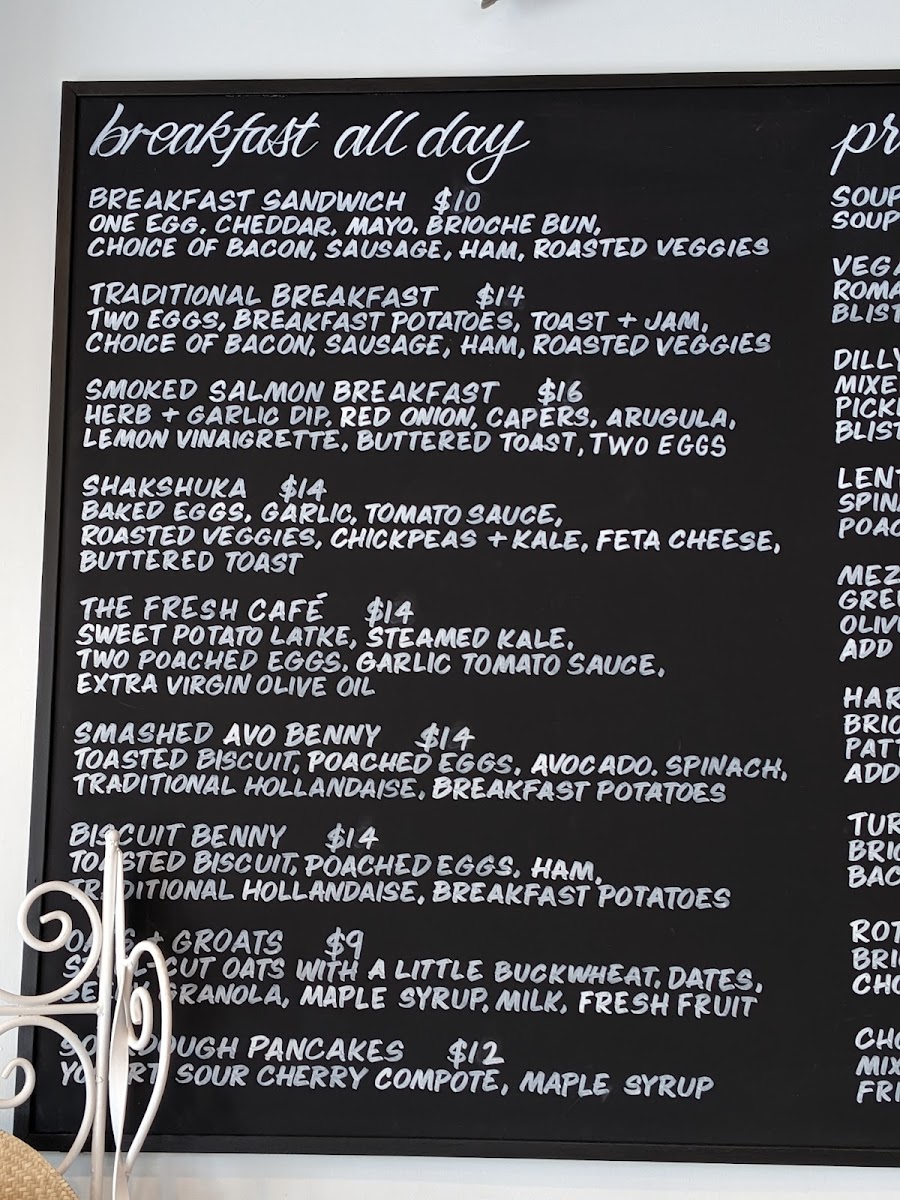 breakfast all day
BREAKFAST SANDWICH $10
ONE EGG, CHEDDAR, MAYO, BRIOCHE BUN,
CHOICE OF BACON, SAUSAGE, HAM, ROASTED VEGGIES
TRADITIONAL BREAKFAST $14
TWO EGGS, BREAKFAST POTATOES, TOAST + JAM,
CHOICE OF BACON, SAUSAGE, HAM, ROASTED VEGGIES
SMOKED SALMON BREAKFAST $16
HERB + GARLIC DIP, RED ONION, CAPERS, ARUGULA,
LEMON VINAIGRETTE, BUTTERED TOAST, TWO EGGS
SHAKSHUKA $14
BAKED EGGS, GARLIC, TOMATO SAUCE,
ROASTED VEGGIES, CHICKPEAS + KALE, FETA CHEESE,
BUTTERED TOAST
THE FRESH CAFÉ $14
SWEET POTATO LATKE, STEAMED KALE,
TWO POACHED EGGS, GARLIC TOMATO SAUCE,
EXTRA VIRGIN OLIVE OIL
SMASHED AVO BENNY $14
TOASTED BISCUIT, POACHED EGGS, AVOCADO, SPINACH,
TRADITIONAL HOLLANDAISE, BREAKFAST POTATOES
BISCUIT BENNY $14
TOASTED BISCUIT, POACHED EGGS, HAM,
TRADITIONAL HOLLANDAISE, BREAKFAST POTATOES
OATS + GROATS $9
STEEL-CUT OATS WITH A LITTLE BUCKWHEAT, DATES,
GRANOLA, MAPLE SYRUP, MILK, FRESH FRUIT
SOURDOUGH PANCAKES $12
YOGURT SOUR CHERRY COMPOTE, MAPLE SYRUP
pr
SOUP
SOUP
VEGA
ROMA
BLIST
DILLY
MIXE
PICKL
BLIST
LENT
SPINA
POAC
MEZ
GREE
OLIV
ADD
HAR
BRIO
PATT
ADD
TUR
BRIO
BAC
ROT
BRIO
CHO
CHO
MIX
FRE